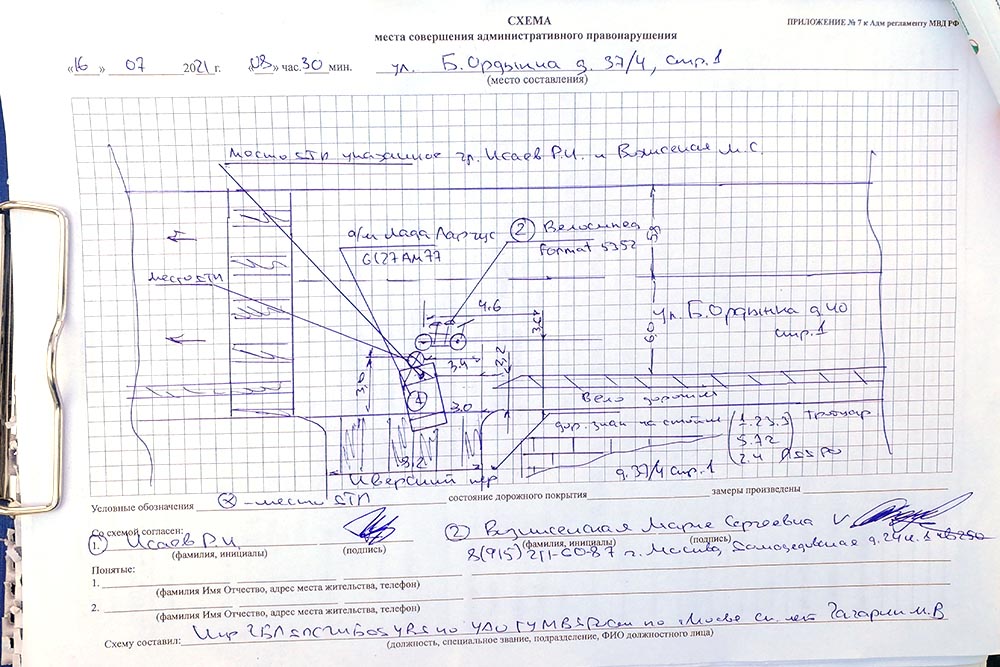 СХЕМА
места совершения административного правонарушения
ПРИЛОЖЕНИЕ № 7 к Адм регламенту МВД РФ
«16» 07 2021 г. «08» час. 30 мин. ул. Б. Ордынка д. 37/4, стр. 1
(место составления)
место ДТП указанное гр. Исаев Р.И. и
М.С.
а/м Лада Ларгус
2 Велосипед
Format 5352
место ДТП
5.9
4.6
ул. Б. Ордынка д 40
стр. 1
6.0
3.4
2,2
3,0
1
3.0
Вело дорожка
дор. знак на стойке
1.23.3
5.72
2.4
Тротуар
3.2
Иверский пер
д. 37/4 стр. 1
Условные обозначения
- место ДТП
состояние дорожного покрытия
замеры произведены
Со схемой согласен:
1. Исаев Р.И.
2 Мария Сергеевна V
(фамилия, инициалы) (подпись) (фамилия, инициалы) (подпись)
8(915) 211-60-87 г. Москва,
Понятые:
1.
(фамилия Имя Отчество, адрес места жительства, телефон)
2.
(фамилия Имя Отчество, адрес места жительства, телефон)
Схему составил:
по г. Москве
М.В
(должность, специальное звание, подразделение, ФИО должностного лица)